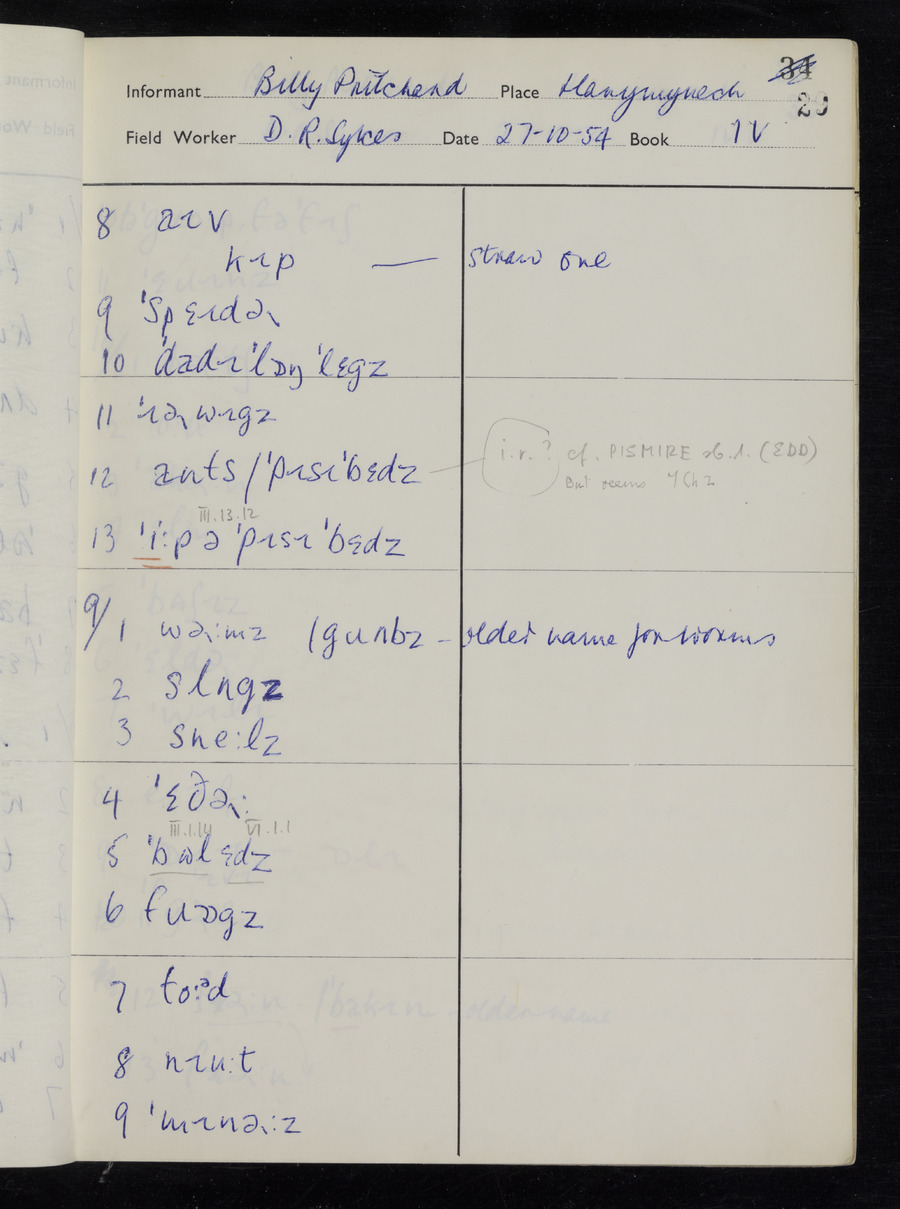 34
Informant Billy Pritchard Place Llanymynech 29
Field Worker D.R. Sykes Date 27-10-54 Book IV
8 aɪv
kɪp — straw one
9 ˈspɛɪdə˞
10 ˈdadɪˈlɒŋˈlɛgz
11 ˈɪə˞wɪgz
12 ants / ˈpɪsɪˈbɛdz i.r.? cf. PISMIRE sb.1. (EDD)
But seems 4Ch2
III.13.12
13 ˈi:pə ˈpɪsɪˈbɛdz
9/1 wə˞:mz / gɹʌbz - older name for worms
2 slʌgz
3 sne:lz
4 ˈɛðə˞:
III.1.14 VI.1.1
5 ˈbʊlɛdz
6 fɹɒgz
7 to:ᵊd
8 nɪu:t
9 ˈmɪnə˞:z